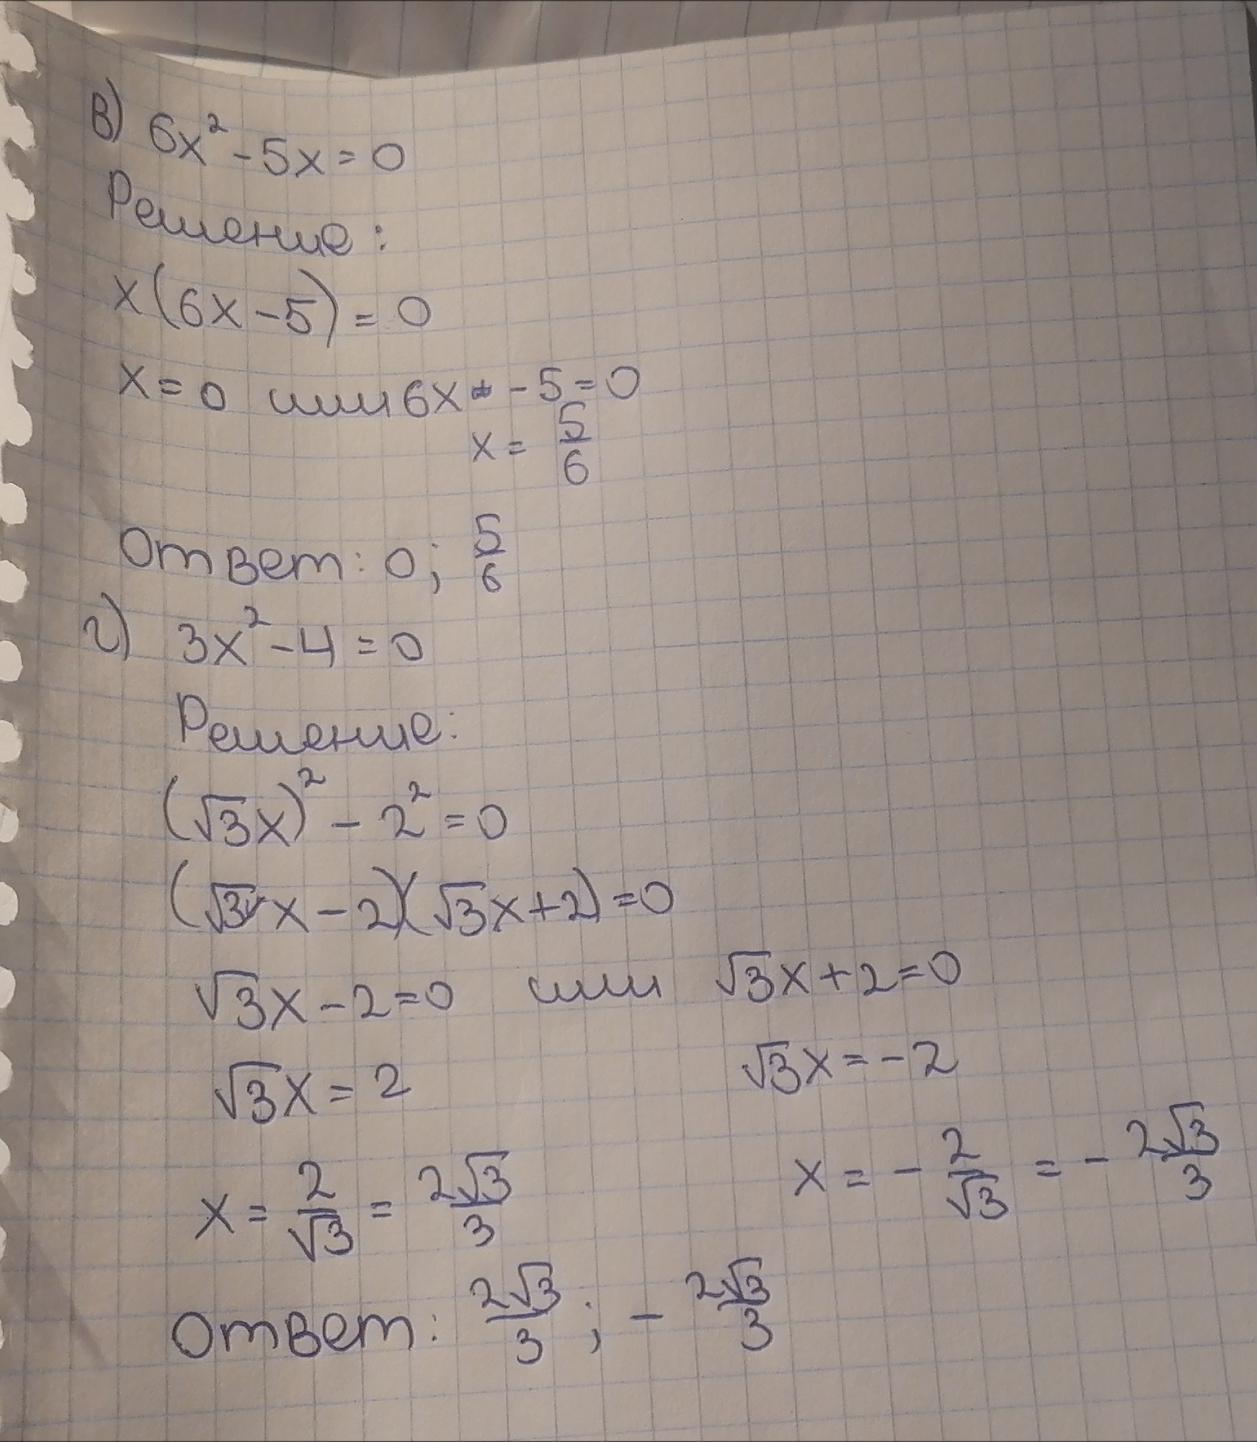 в) 6x² - 5x = 0
Решение:
x(6x - 5) = 0
x = 0 или 6x - 5 = 0
x = 5/6
Ответ: 0; 5/6
г) 3x² - 4 = 0
Решение:
(√3x)² - 2² = 0
(√3x - 2)(√3x + 2) = 0
√3x - 2 = 0 или √3x + 2 = 0
√3x = 2 √3x = -2
x = 2/√3 = 2√3/3 x = - 2/√3 = - 2√3/3
Ответ: 2√3/3; - 2√3/3